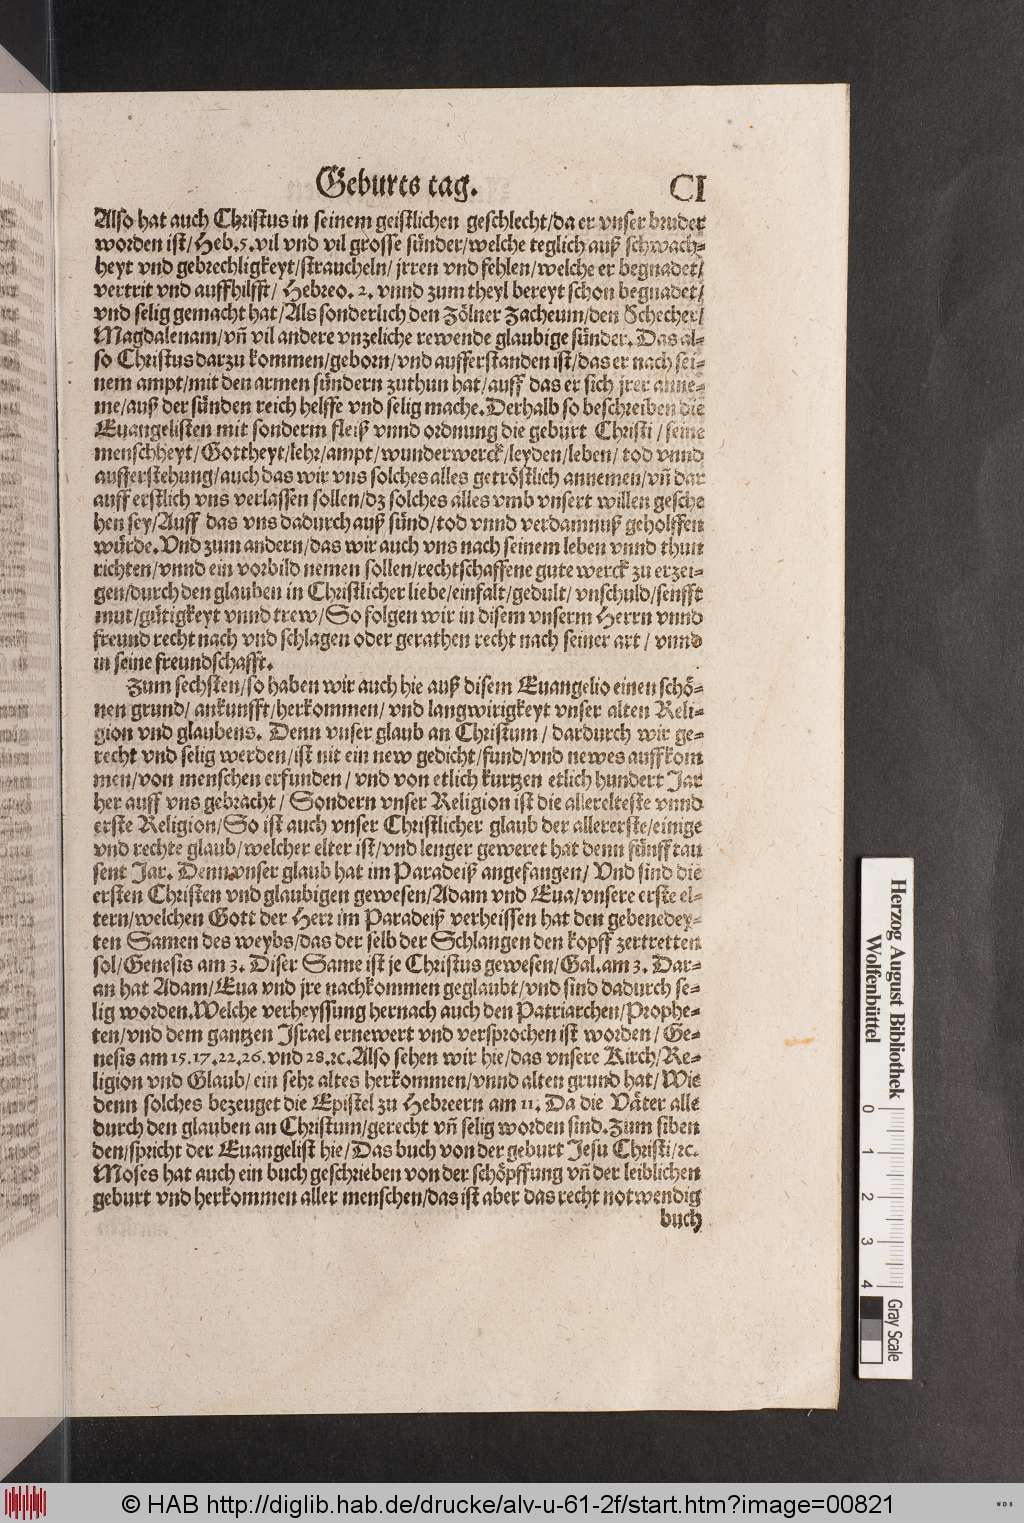 Geburts tag. CI
Also hat auch Christus in seinem geistlichen geschlecht/da er vnser bruder
worden ist/Heb.5.vil vnd vil grosse sünder/welche teglich auß schwach-
heyt vnd gebrechligkeyt/straucheln/jrren vnd fehlen/welche er begnadet/
vertrit vnd auffhilfft/ Hebreo. 2. vnnd zum theyl bereyt schon begnadet/
vnd selig gemacht hat/Als sonderlich den Zölner Zacheum/den Schecher/
Magdalenam/vñ vil andere vnzeliche rewende glaubige sünder. Das al-
so Christus darzu kommen/geborn/vnd aufferstanden ist/das er nach sei-
nem ampt/mit den armen sündern zuthun hat/auff das er sich jrer anne-
me/auß der sünden reich helffe vnd selig mache. Derhalb so beschreiben die
Euangelisten mit sonderm fleiß vnnd ordnung die geburt Christi/seine
menschheyt/Gottheyt/lehr/ampt/wunderwerck/leyden/leben/ tod vnnd
aufferstehung/auch das wir vns solches alles getröstlich annemen/vñ dar
auff erstlich vns verlassen sollen/dz solches alles vmb vnsert willen gesche
hen sey/Auff das vns dadurch auß sünd/tod vnnd verdamnuß geholffen
würde. Vnd zum andern/das wir auch vns nach seinem leben vnnd thun
richten/vnnd ein vorbild nemen sollen/rechtschaffene gute werck zu erzei-
gen/durch den glauben in Christlicher liebe/einfalt/gedult/ vnschuld/senfft
mut/gütigkeyt vnnd trew/So folgen wir in disem vnserm Herrn vnnd
freund recht nach vnd schlagen oder gerathen recht nach seiner art/ vnnd
in seine freundschafft.
Zum sechsten/so haben wir auch hie auß disem Euangelio einen schö-
nen grund/ ankunfft/herkommen/ vnd langwirigkeyt vnser alten Reli-
gion vnd glaubens. Denn vnser glaub an Christum/ dardurch wir ge-
recht vnd selig werden/ist nit ein new gedicht/fund/vnd newes auffkom
men/von menschen erfunden/ vnd von etlich kurtzen etlich hundert Jar
her auff vns gebracht/ Sondern vnser Religion ist die allerelteste vnnd
erste Religion/So ist auch vnser Christlicher glaub der allererste/einige
vnd rechte glaub/welcher elter ist/vnd lenger geweret hat denn fünff tau
sent Jar. Denn vnser glaub hat im Paradeiß angefangen/ Vnd sind die
ersten Christen vnd glaubigen gewesen/Adam vnd Eua/vnsere erste el-
tern/welchen Gott der Herr im Paradeiß verheissen hat den gebenedey-
ten Samen des weybs/das der selb der Schlangen den kopff zertretten
sol/Genesis am 3. Diser Same ist je Christus gewesen/Gal.am 3. Dar-
an hat Adam/Eua vnd jre nachkommen geglaubt/vnd sind dadurch se-
lig worden. Welche verheyssung hernach auch den Patriarchen/Prophe-
ten/vnd dem gantzen Israel ernewert vnd versprochen ist worden/ Ge-
nesis am 15. 17. 22. 26. vnd 28. ꝛc. Also sehen wir hie/das vnsere Kirch/Re-
ligion vnd Glaub/ein sehr altes herkommen/vnnd alten grund hat/Wie
denn solches bezeuget die Epistel zu Hebreern am 11. Da die Väter alle
durch den glauben an Christum/gerecht vñ selig worden sind. Zum siben
den/spricht der Euangelist hie/Das buch von der geburt Jesu Christi/ꝛc.
Moses hat auch ein buch geschrieben von der schöpffung vñ der leiblichen
geburt vnd herkommen aller menschen/das ist aber das recht notwendig
buch
Herzog August Bibliothek
Wolfenbüttel
0 1 2 3 4
Gray Scale
© HAB http://diglib.hab.de/drucke/alv-u-61-2f/start.htm?image=00821